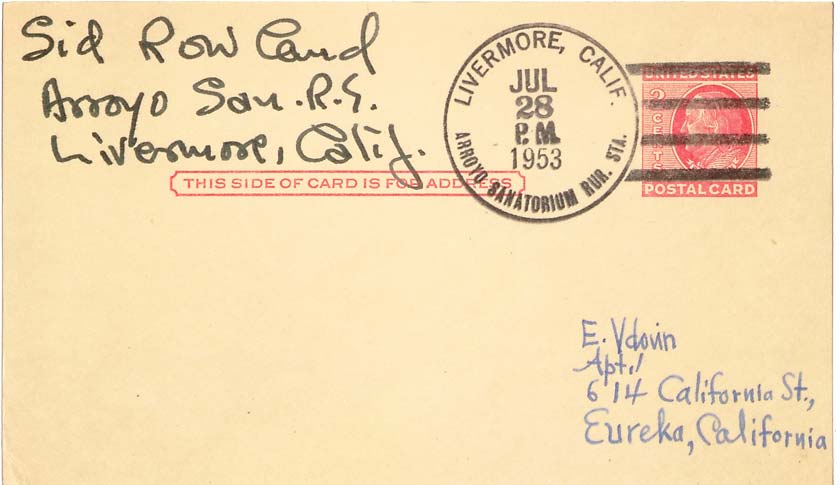 Sid Rowland
Arroyo San. R.S.
Livermore, Calif.
THIS SIDE OF CARD IS FOR ADDRESS
LIVERMORE, CALIF.
JUL
28
P.M.
1953
ARROYO SANATORIUM RUR. STA.
UNITED STATES
2 CENTS
POSTAL CARD
E. Vdovin
Apt. 1
614 California St.,
Eureka, California